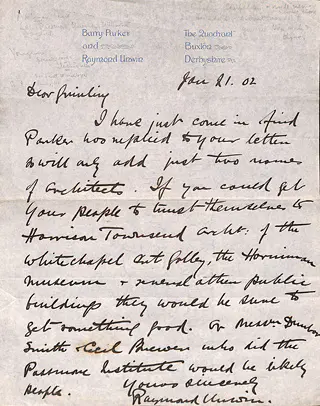 Barry Parker
and
Raymond Unwin
The Quadrant
Buxton
Derbyshire
Jan 21. 02
Dear
I have just come in & find
Parker has replied to your letter
so will only add just two names
of architects. If you could get
your people to trust themselves to
Harrison Townsend Archt: of the
Whitechapel Art Galley, the Horniman
Museum & several other public
buildings they would be sure to
get something good. Or Messrs Dunbar
Smith & Cecil Brewer who did the
Passmore Institute would be likely
people.
Yours sincerely
Raymond Unwin.